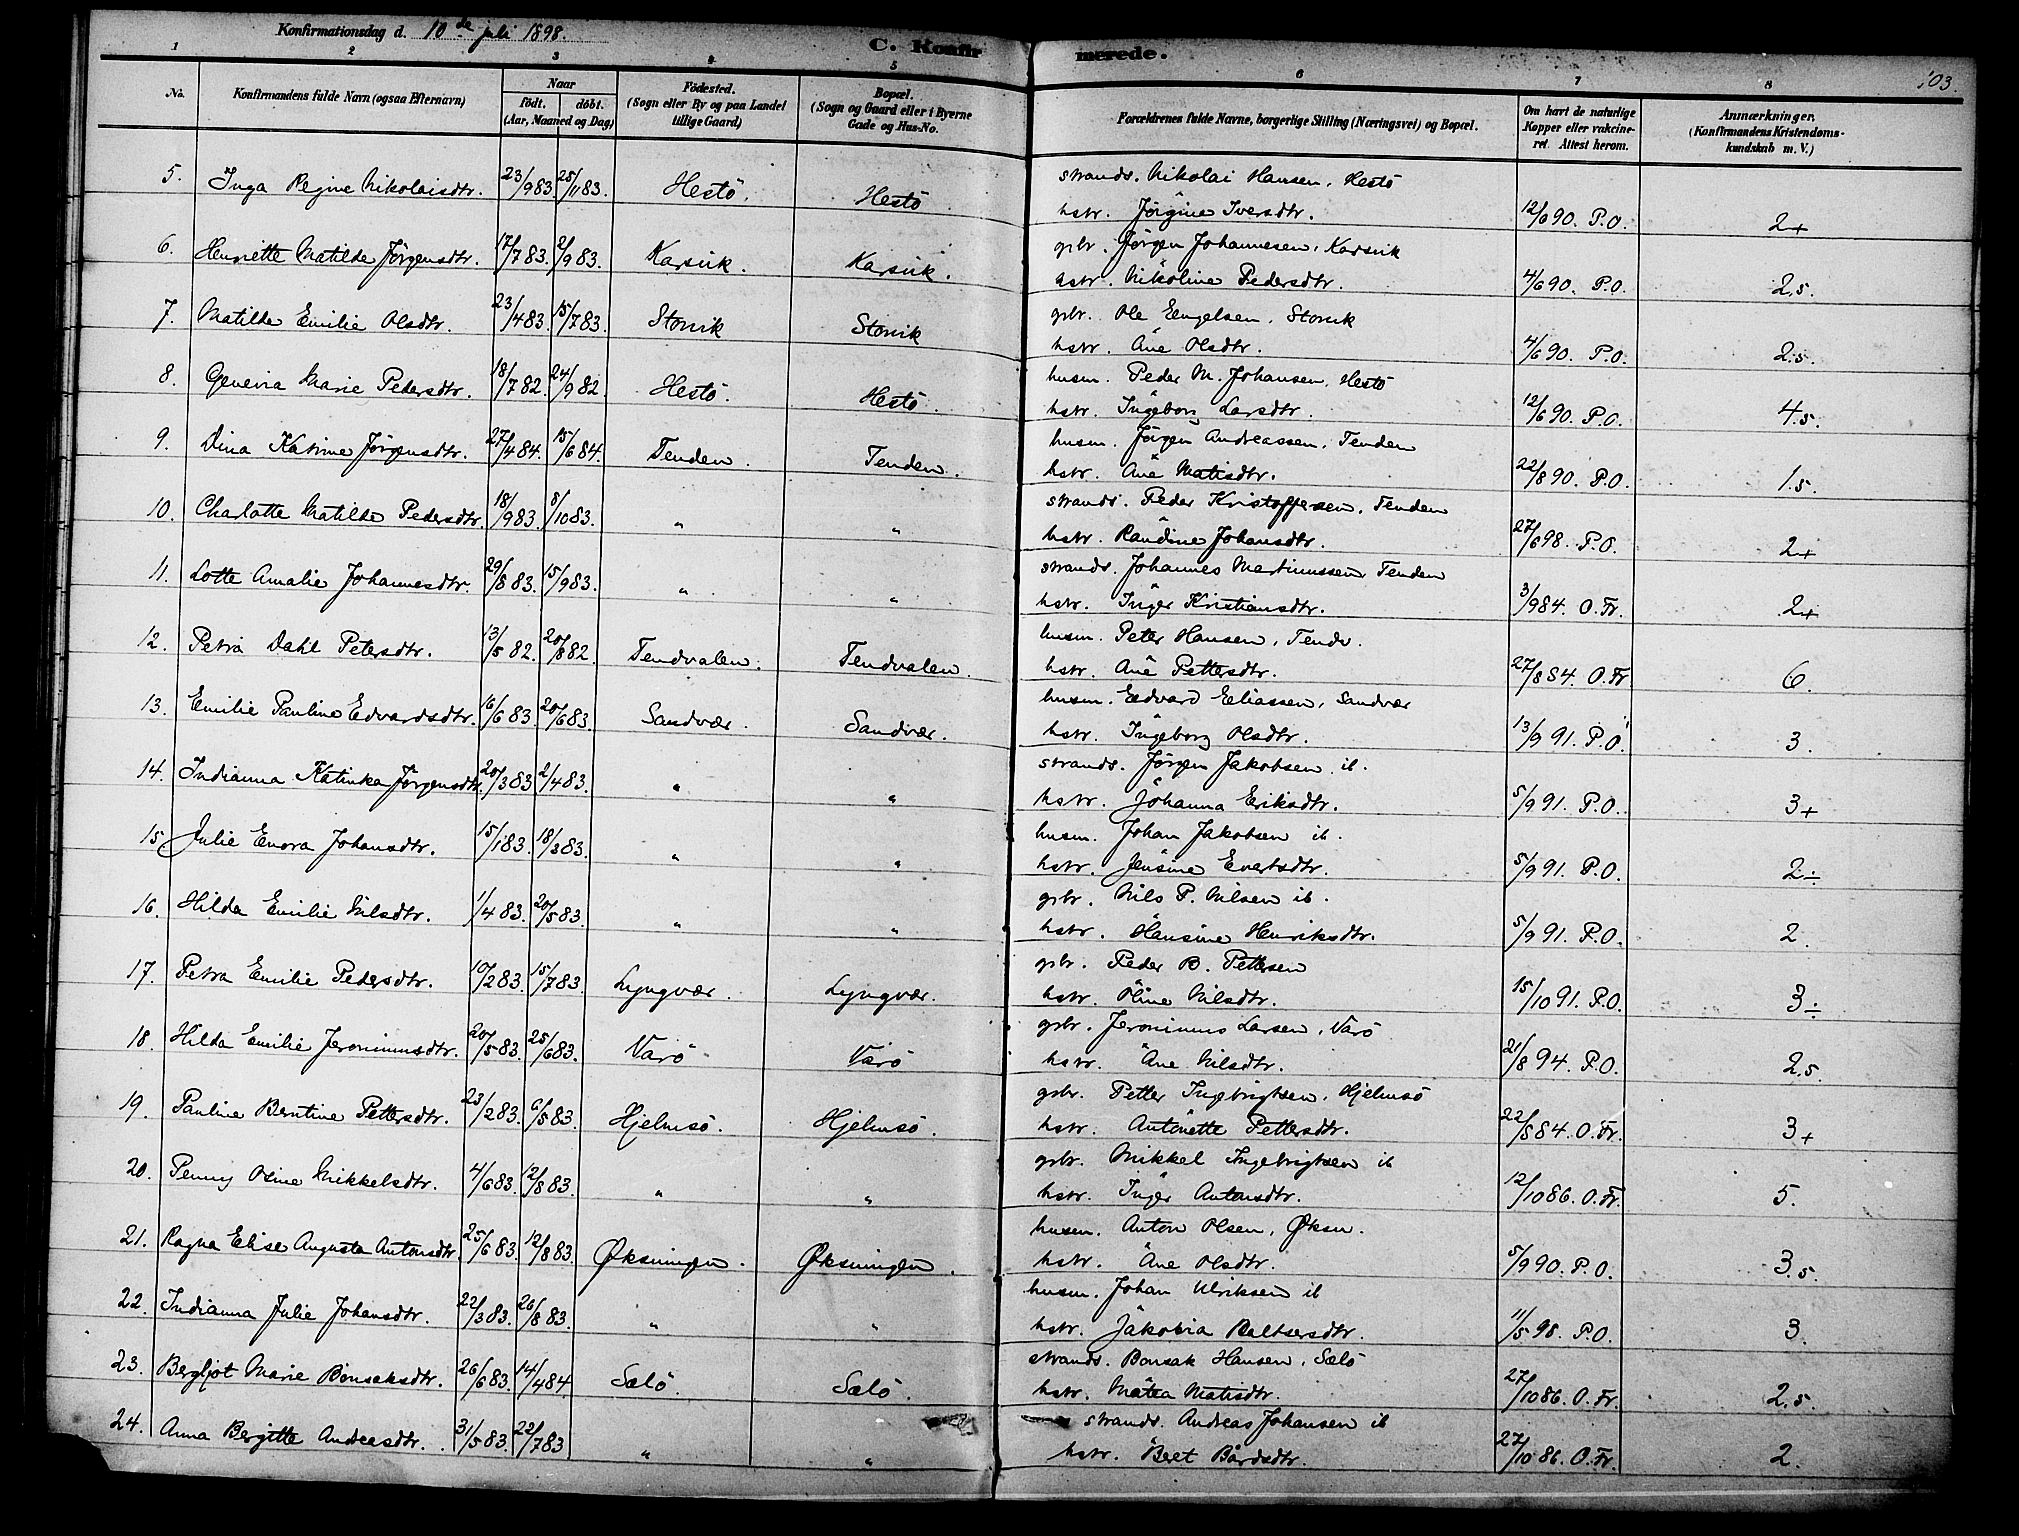 Konfirmationsdag d. 10de juli 1898.
C. Konfirmerede.
103.
1 2 3 4 5 6 7 8
No. Konfirmandens fulde Navn (ogsaa Efternavn) Naar født. døbt. (Aar, Maaned og Dag) Fødested. (Sogn eller By og paa Landet tillige Gaard) Bopæl. (Sogn og Gaard eller i Byerne Gade og Hus-No. Forældrenes fulde Navne, borgerlige Stilling (Næringsvei) og Bopæl. Om havt de naturlige Kopper eller vakcineret. Attest herom. Anmærkninger. (Konfirmandens Kristendomskundskab m. V.)
5. Inga Regine Nikolaisdtr. 23/9 83. 25/11 83. Hestö. Hestö strands. Nikolai Hansen, Hestö
hstr. Jörgine Iversdtr. 12/6 90. P.O. 2+
6. Henriette Matilde Jörgensdtr. 17/7 83. 2/9 83. Karsvik. Karsvik. grbr. Jörgen Johannesen, Karsvik
hstr. Nikoline Pedersdtr. 4/6 90. P.O. 2.5.
7. Matilde Emilie Olsdtr. 23/4 83. 15/7 83. Storvik Storvik grbr. Ole Engelsen, Storvik
hstr. Ane Olsdtr. 4/6 90. P.O. 2.5.
8. Marie Pedersdtr. 18/7 82. 24/9 82. Hestö. Hestö. husm. Peder M. Johansen, Hestö
hstr. Ingeborg Larsdtr. 12/6 90. P.O. 4.5.
9. Dina Katrine Jörgensdtr. 27/4 84. 15/6 84. Tenden. Tenden. husm. Jörgen Andreassen, Tenden
hstr. Ane Matisdtr. 22/8 90. P.O. 1.5.
10. Charlotte Matilde Pedersdtr. 18/9 83. 8/10 83. " " strands. Peder Kristoffersen, Tenden
hstr. Randine Johansdtr. 27/6 98. P.O. 2+
11. Lotte Amalie Johannesdtr. 29/8 83. 15/9 83. " " strands. Johannes Martinussen, Tenden
hstr. Inger Kristiansdtr. 3/9 84. O.Fr. 2+
12. Petra Dahl Petersdtr. 13/5 82. 20/8 82. Tendvalen. Tendvalen. husm. Peter Hansen, Tendv.
hstr. Ane Pettersdtr. 27/8 84. O.Fr. 6.
13. Emilie Pauline Edvardsdtr. 16/6 83. 20/6 83. Sandvær. Sandvær. husm. Edvard Eliassen, Sandvær
hstr. Ingeborg Olsdtr. 13/9 91. P.O. 3.
14. Indianna Katinka Jörgensdtr. 20/3 83. 2/4 83. " " strands. Jörgen Jakobsen ib.
hstr. Johanna Eriksdtr. 5/9 91. P.O. 3+
15 Julie Enora Johansdtr. 15/1 83. 18/3 83. " " husm. Johan Jakobsen ib.
hstr. Jensine Evertsdtr. 5/9 91. P.O. 2÷
16. Hilda Emilie Nilsdtr. 1/4 83. 20/5 83. " " grbr. Nils P. Nilsen ib.
hstr. Hansine Henriksdtr. 5/9 91. P.O. 2.
17. Petra Emilie Pedersdtr. 10/2 83. 15/7 83. Lyngvær. Lyngvær. grbr. Peder B. Pettersen
hstr. Oline Nilsdtr. 15/10 91. P.O. 3÷
18. Hilda Emilie Jeronimusdtr. 20/5 83. 25/6 83. Varö Varö grbr. Jeronimus Larsen, Varö
hstr. Ane Nilsdtr. 21/8 94. P.O. 2.5.
19. Pauline Berntine Pettersdtr. 23/2 83. 6/5 83. Hjelmsö. Hjelmsö. grbr. Petter Ingebrigtsen, Hjelmsö
hstr. Antonette Pettersdtr. 22/8 84. O.Fr. 3+
20. Penny Osine Mikkelsdtr. 4/6 83. 12/8 83. " " grbr. Mikkel Ingebrigtsen ib
hstr. Inger Antonsdtr. 12/10 86. O.Fr. 5.
21. Ragna Elise Augusta Antonsdtr. 25/6 83. 12/8 83. Øksningen. Øksningen. husm. Anton Olsen, Øksn.
hstr. Ane Olsdtr. 5/9 90. P.O. 3.5.
22. Indianna Julie Johansdtr. 22/3 83. 26/8 83. " " husm. Johan Ulriksen ib
hstr. Jakobia Baltsersdtr. 11/5 98. P.O. 3.
23. Bergljot Marie Bonsaksdtr. 26/6 83. 14/4 84 Sælö. Sælö. strands. Bonsak Hansen, Sælö
hstr. Mätea Matisdtr. 27/10 86. O.Fr. 2.5.
24. Anna Bergitte Andreasdtr. 31/5 83. 22/7 83 " " strands. Andreas Johansen ib
hstr. Beret Bårdsdtr. 27/10 86. O.Fr. 2.